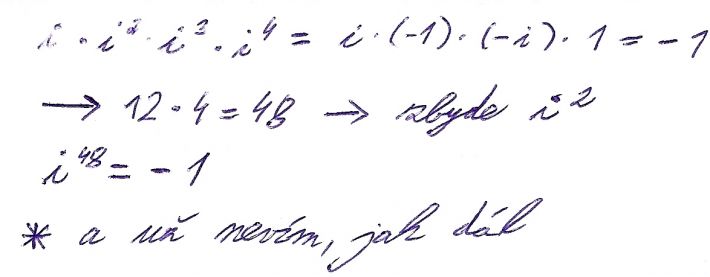 i · i² · i³ · i⁴ = i · (-1) · (-i) · 1 = -1
→ 12 · 4 = 48 → zbyde i²
i⁴⁸ = -1
* a už nevím, jak dál